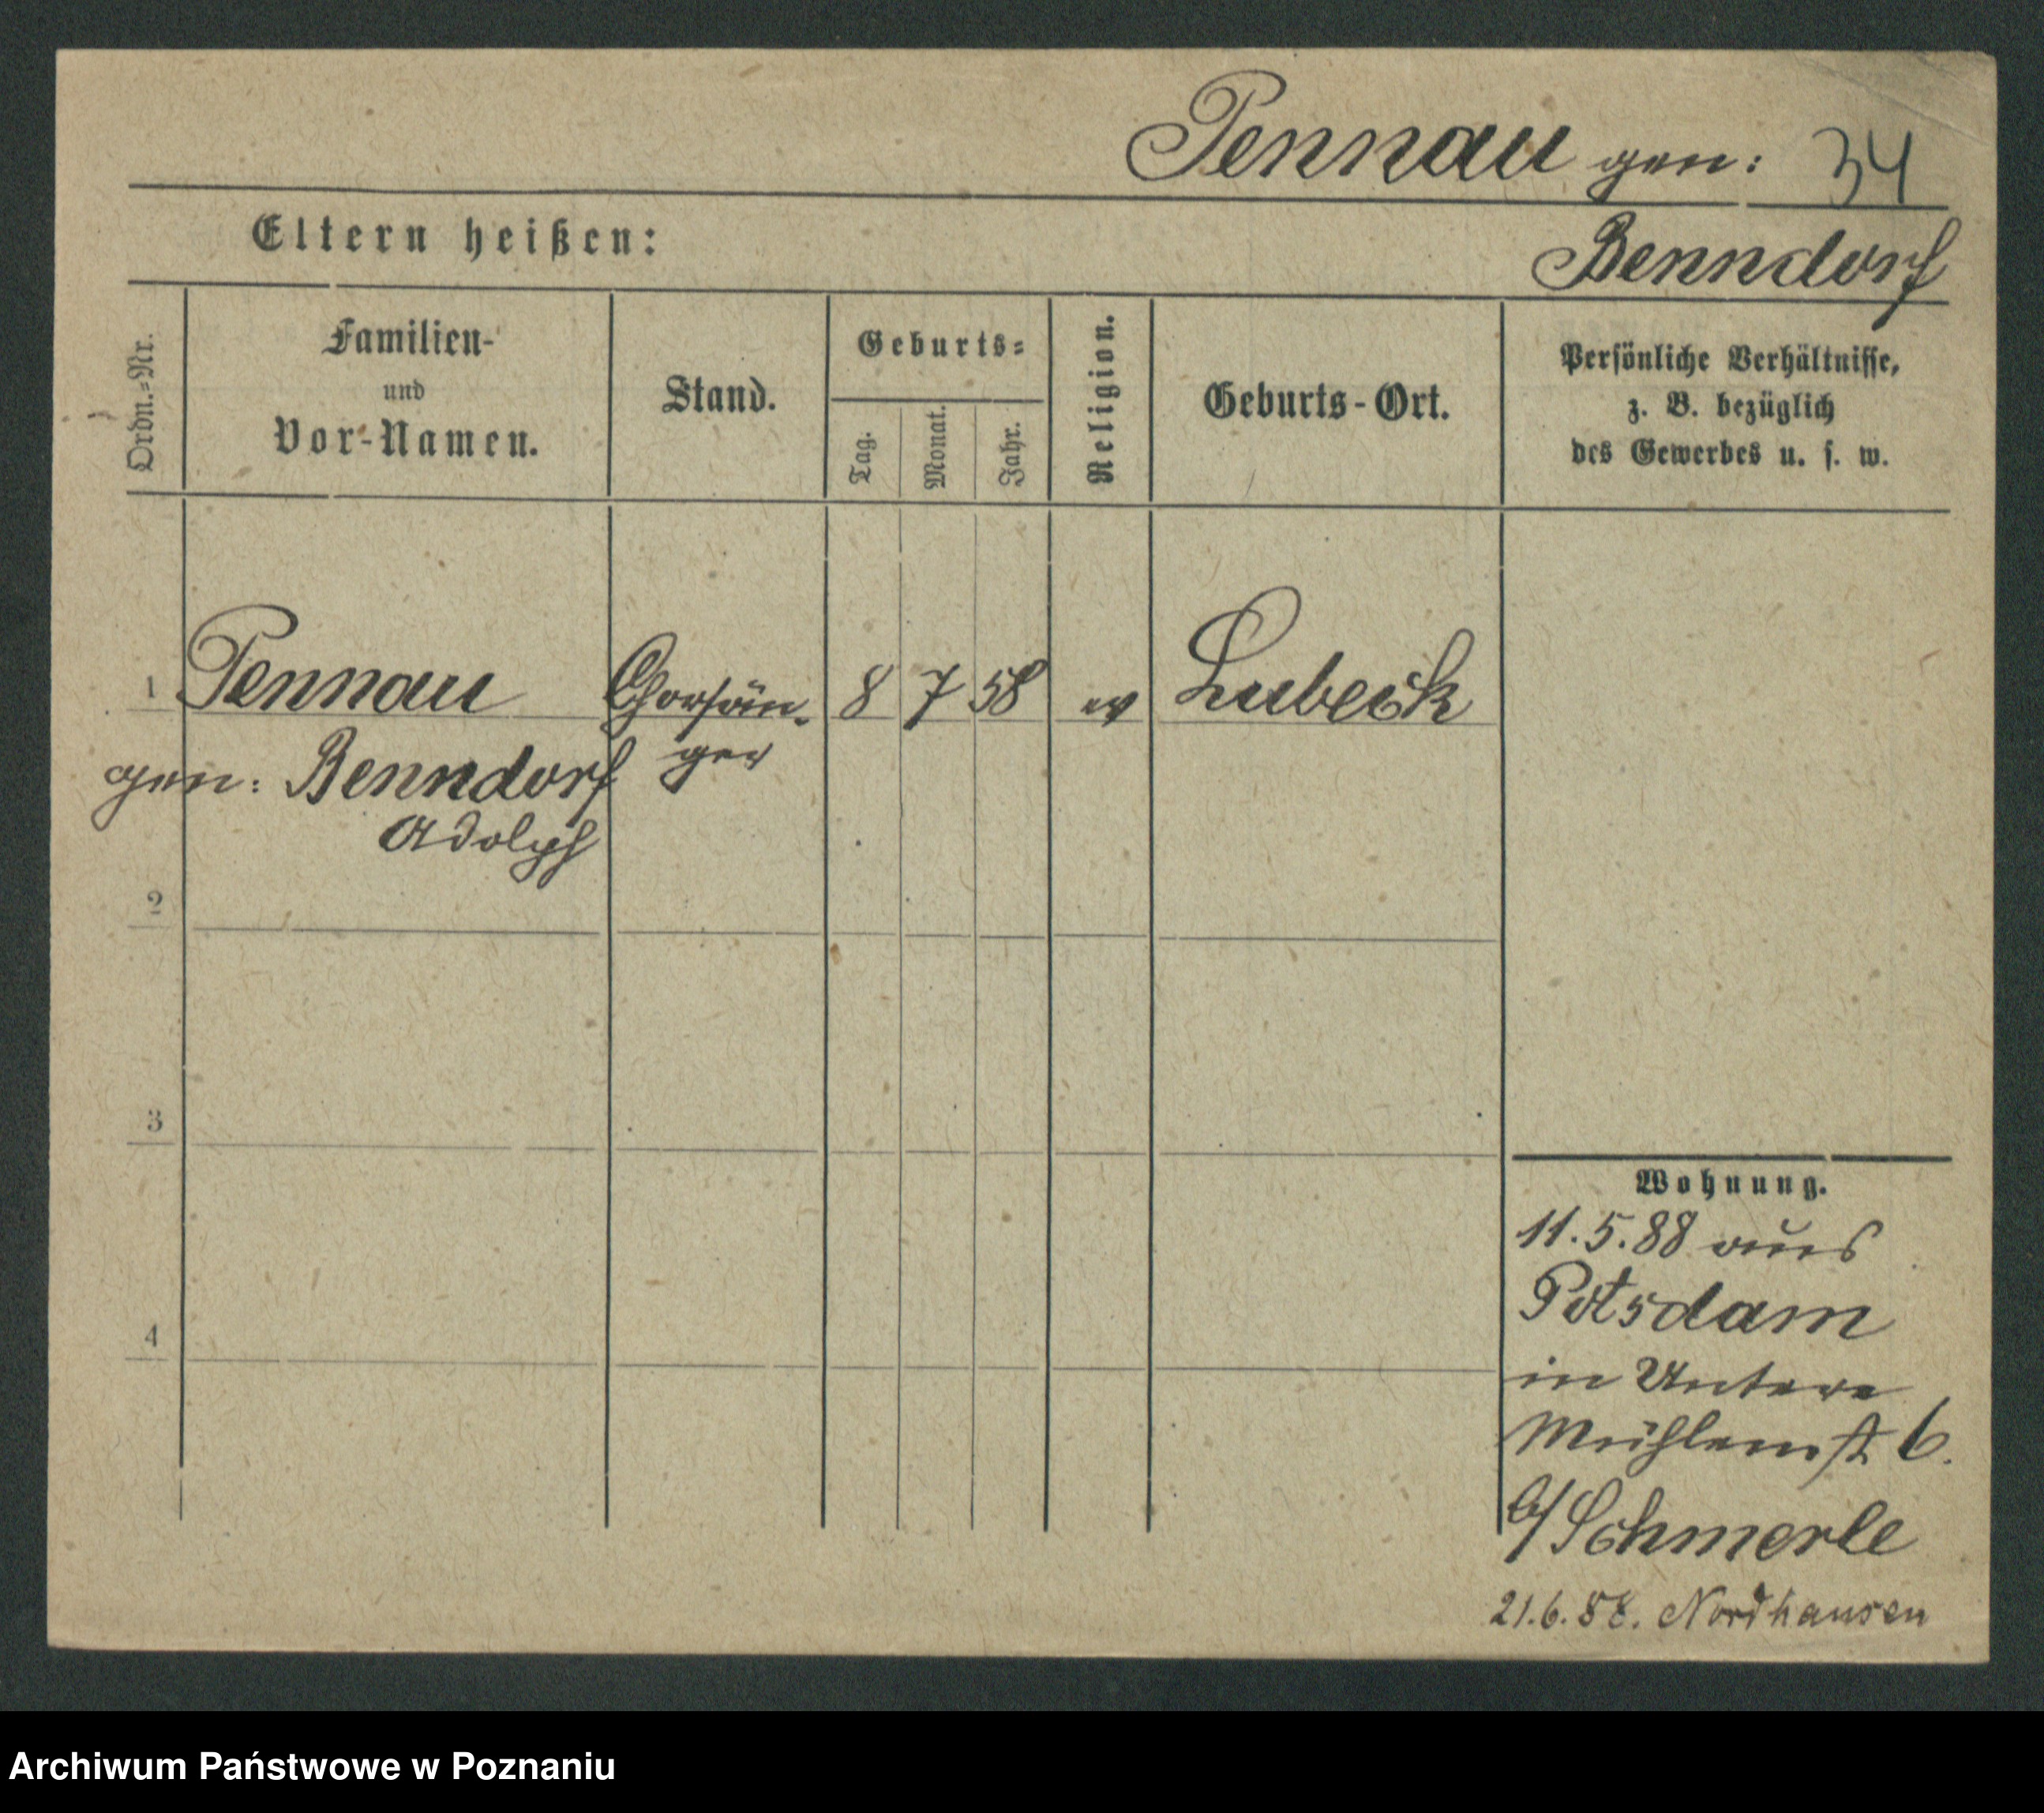 Pennau gen: 34
Eltern heißen: Benndorf
Ordn.=Nr.
Familien- und Vor-Namen.
Stand.
Geburts=
Tag. Monat. Jahr.
Religion.
Geburts-Ort.
Persönliche Verhältnisse,
z. B. bezüglich
des Gewerbes u. s. w.
1 Pennau Chorsän- 8 7 58 ev Lubeck
gen: Benndorf ger
Adolph
2
3
4
Wohnung.
11.5.88 aus
Potsdam
in Untere
Mühlenst 6.
b/ Schmerle
21.6.88. Nordhausen
Archiwum Państwowe w Poznaniu